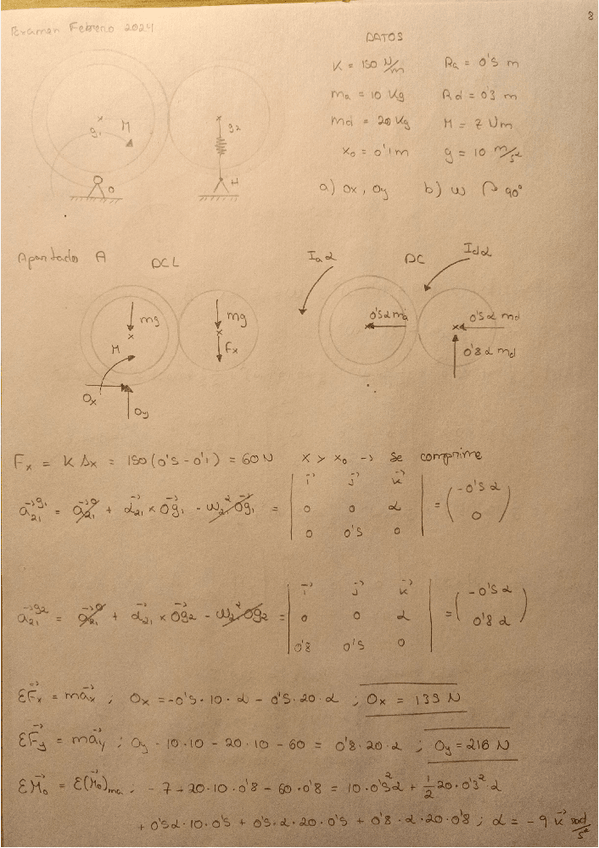 Examen Febrero 2024
8
DATOS
K = 150 N/m Ra = 0'5 m
ma = 10 Kg Rd = 03 m
md = 20 Kg M = 7 Nm
x₀ = 0'1 m g = 10 m/s²
a) Ox, Oy b) ω 90°
g₁ M g₂
O H
Apartado A DCL Iaα DC Idα
mg mg 0'5α ma 0'5α md
M Fx 0'8α md
Ox Oy
Fx = K Δx = 150 (0'5 - 0'1) = 60 N x > x₀ → se comprime
a₂₁^g₁ = a₂₁^O + α₂₁ × Og₁ - ω₂₁² Og₁ = | i j k | 0 0 α | 0 0'5 0 | = (-0'5 α, 0)
a₂₁^g₂ = a₂₁^O + α₂₁ × Og₂ - ω₂₁² Og₂ = | i j k | 0 0 α | 0'8 0'5 0 | = (-0'5 α, 0'8 α)
ΣFx = max ; Ox = -0'5 · 10 · α - 0'5 · 20 · α ; Ox = 133 N
ΣFy = may ; Oy - 10·10 - 20·10 - 60 = 0'8 · 20 · α ; Oy = 216 N
ΣMo = Σ(Mo)ma ; -7 - 20·10·0'8 - 60·0'8 = 10·0'5²α + 1/2 20·0'3²·α
+ 0'5α·10·0'5 + 0'5·α·20·0'5 + 0'8·α·20·0'8 ; α = -9 k rad/s²